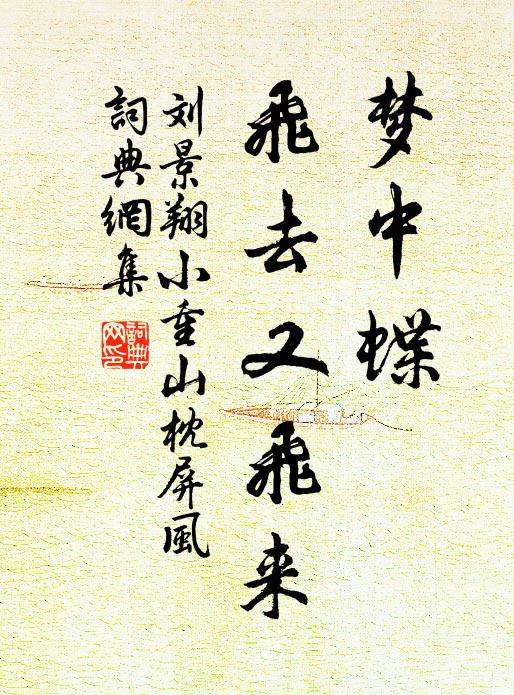 梦中蝶
飛去又飛来
刘景翔小重山枕屏風
詞典網集
詞典
网印